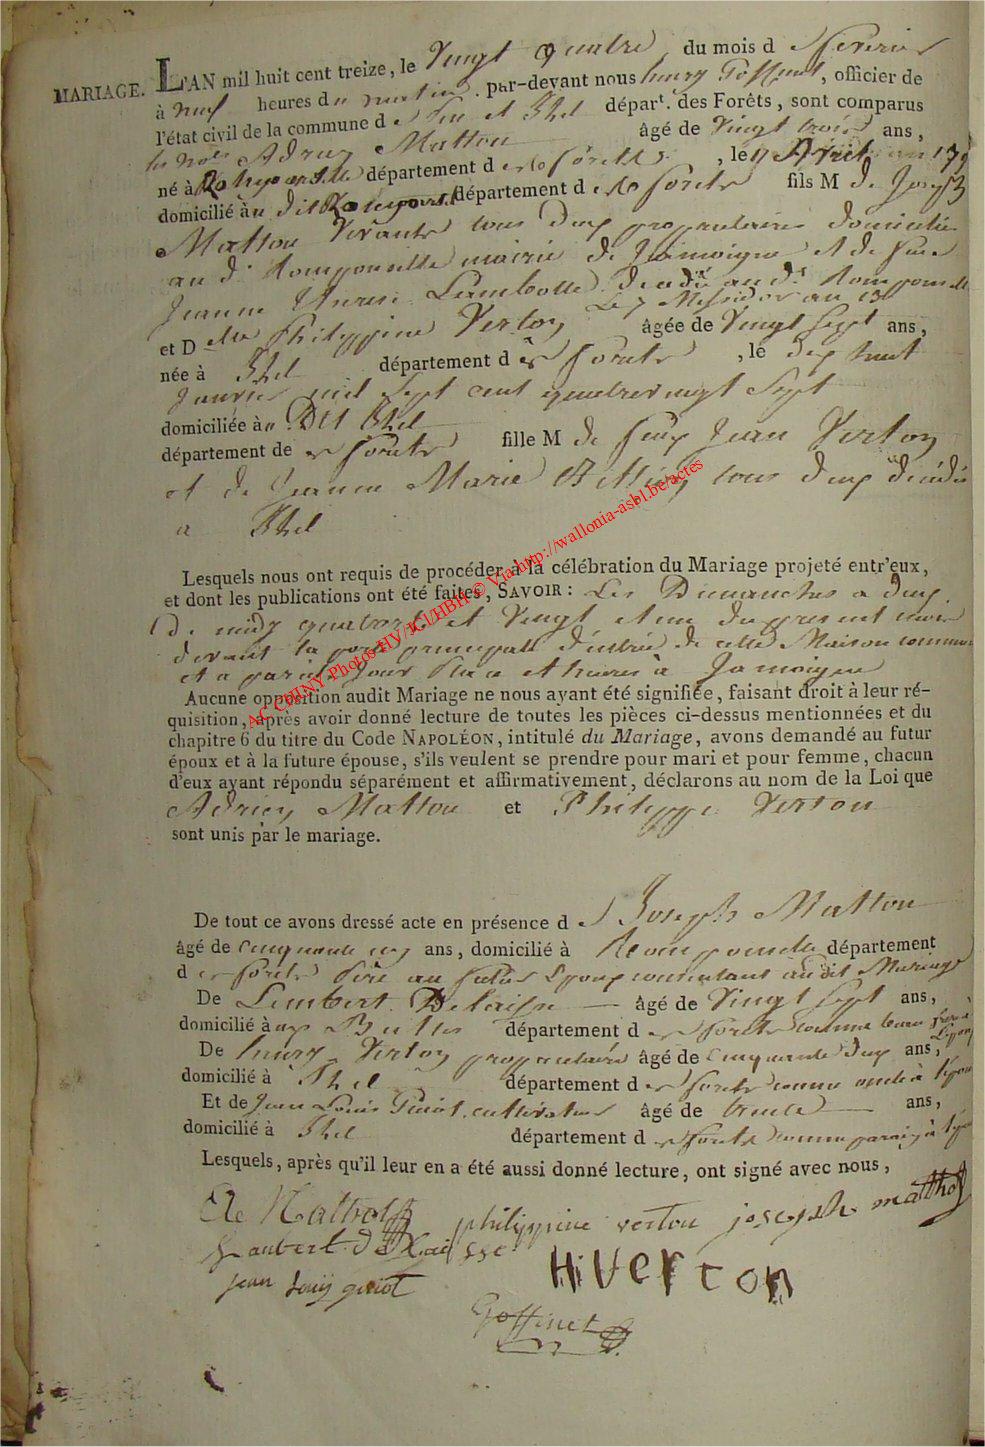 MARIAGE. L'AN mil huit cent treize, le Vingt quatre du mois d e fevrier
à neuf heures du matin. par-devant nous henry Goffinet, officier de
l'état civil de la commune d e et Thel départ. des Forêts, sont comparus
Adrien Mattou âgé de Vingt trois ans,
né à département d es forêts, le avril
domicilié au dit département d es forêts fils M de Joseph
Mattou Vivante tous deux propriétaires domiciliés
au dt Romponcelle mairie de Jamoigne et de feue
Jeanne Lambotte décédée au dt Romponcelle
Le 7 Messidor an 13
et D elle Philippine Verton âgée de Vingt Sept ans,
née à Thel département d es forets, le dix huit
Janvier mil Sept cent quatre vingt Sept
domiciliée au Dit Thel
département de es forets fille M de feux Jean Verton
et de Jeanne Marie tous deux décédés
a Thel
Lesquels nous ont requis de procéder à la célébration du Mariage projeté entr'eux,
et dont les publications ont été faites, SAVOIR : Les Dimanches a deux
de midy quatorze et Vingt et un du présent mois
devant la porte principale d'entrée de cette Maison commune
et a pareils Jour Place et heures à Jamoigne
Aucune opposition audit Mariage ne nous ayant été signifiée, faisant droit à leur ré-
quisition, après avoir donné lecture de toutes les pièces ci-dessus mentionnées et du
chapitre 6 du titre du Code NAPOLÉON, intitulé du Mariage, avons demandé au futur
époux et à la future épouse, s'ils veulent se prendre pour mari et pour femme, chacun
d'eux ayant répondu séparément et affirmativement, déclarons au nom de la Loi que
Adrien Mattou et Philippe Verton
sont unis par le mariage.
De tout ce avons dressé acte en présence d e Joseph Mattou
âgé de cinquante ans, domicilié à Romponcelle département
d es forets Père au futur Epoux consentant audit Mariage
De Lambert Delaisse âgé de Vingt Sept ans,
domicilié à département d es forets comme beau frere à
l'epoux
De henry Verton propriétaire âgé de cinquante deux ans,
domicilié à Thel département d es forets comme oncle à
Et de Jean Louis Guiot cultivateur âgé de trente ans,
domicilié à Thel département d es forets comme à
Lesquels, après qu'il leur en a été aussi donné lecture, ont signé avec nous,
philippine verton joseph matthou
jean louij guiot HiVerton
Goffinet
AC CHINY Photos HV/JCI/HBH © Via http://wallonia-asbl.be/actes